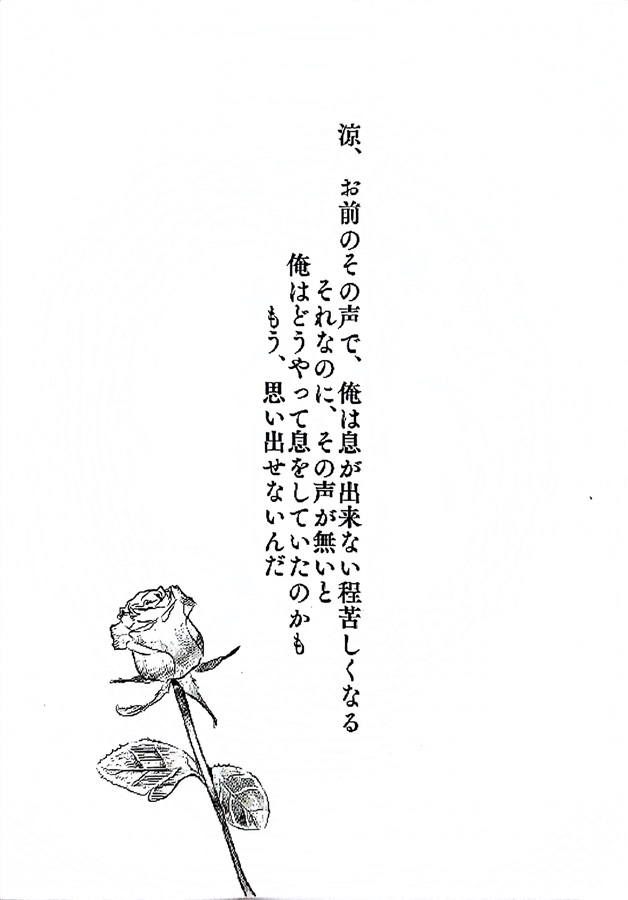 涼、お前のその声で、俺は息が出来ない程苦しくなる
それなのに、その声が無いと
俺はどうやって息をしていたのかも
もう、思い出せないんだ